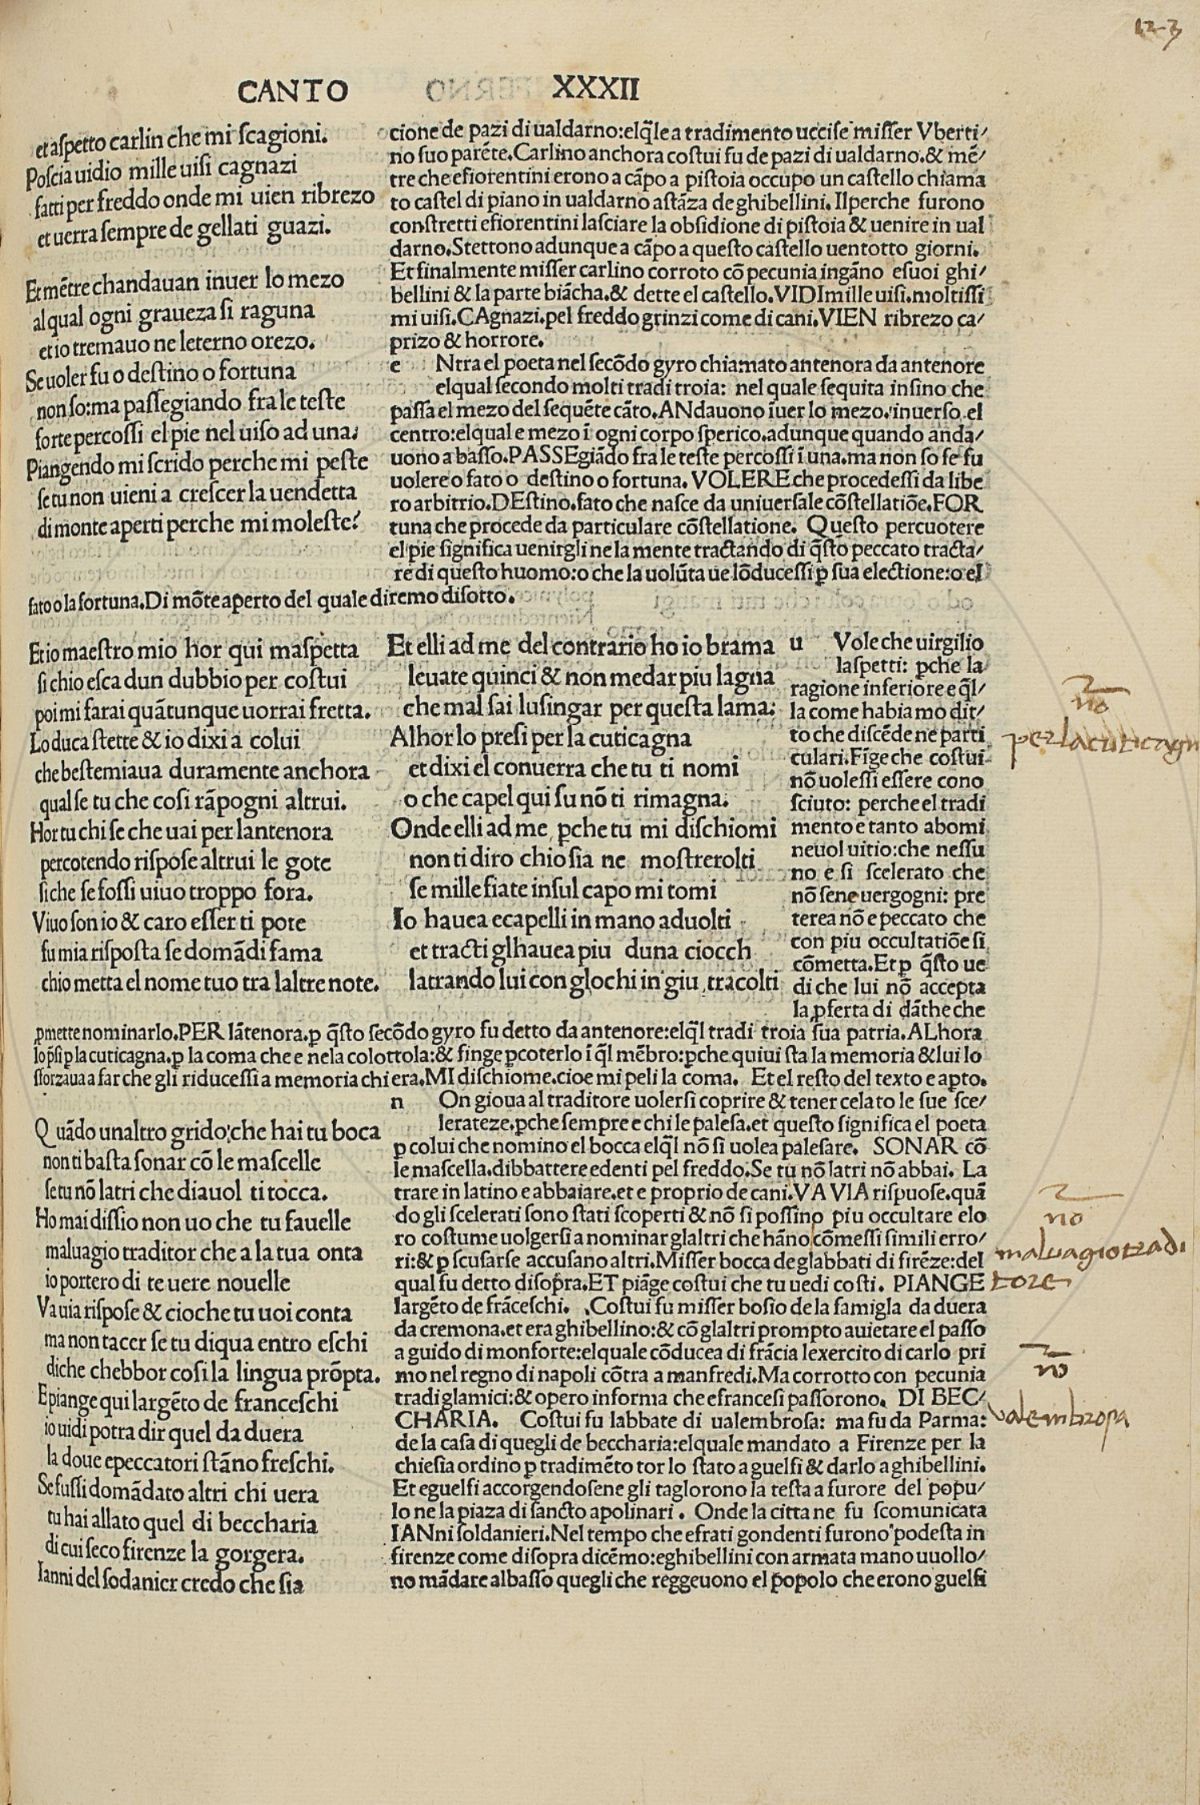 123
CANTO XXXII
et aspetto carlin che mi scagioni.
Poscia uidio mille uisi cagnazi
fatti per freddo onde mi uien ribrezo
et uerra sempre de gellati guazi.
Et mẽtre chandauan inuer lo mezo
al qual ogni graueza si raguna
et io tremauo ne leterno orezo.
Se uoler fu o destino o fortuna
non so:ma passegiando fra le teste
forte percossi el pie nel uiso ad una.
Piangendo mi scrido perche mi peste
se tu non uieni a crescer la uendetta
di monte aperti perche mi moleste?
cione de pazi di ualdarno:elq̃le a tradimento uccise misser Vberti/
no suo parẽte.Carlino anchora costui fu de pazi di ualdarno.& mẽ/
tre che efiorentini erono a cãpo a pistoia occupo un castello chiama
to castel di piano in ualdarno astãza de ghibellini.Ilperche furono
constretti efiorentini lasciare la obsidione di pistoia & uenire in ual
darno.Stettono adunque a cãpo a questo castello uentotto giorni.
Et finalmente misser carlino corroto cõ pecunia ingãno esuoi ghi/
bellini & la parte biãcha.& dette el castello.VIDI mille uisi.moltissi
mi uisi.CAgnazi.pel freddo grinzi come di cani.VIEN ribrezo ca/
prizo & horrore.
e Ntra el poeta nel secõdo gyro chiamato antenora da antenore
elqual secondo molti tradi troia: nel quale sequita insino che
passa el mezo del sequẽte cãto.ANdauono iuer lo mezo./inuerso el
centro:elqual e mezo ĩ ogni corpo sperico.adunque quando anda/
uono a basso.PASSEgiãdo fra le teste percossi ĩ una.ma non so se fu
uolere o fato o destino o fortuna. VOLERE che procedessi da libe
ro arbitrio.DEstino.fato che nasce da uniuersale cõstellatiõe.FOR
tuna che procede da particulare cõstellatione. Questo percuotere
el pie significa uenirgli ne la mente tractando di q̃sto peccato tracta/
re di questo huomo:o che la uolũta ue lõducessi p̱ sua electione:o el
fato o la fortuna.Di mõte aperto del quale diremo disotto.
Et io maestro mio hor qui maspetta
si chio esca dun dubbio per costui
poi mi farai quãtunque uorrai fretta.
Lo duca stette & io dixi a colui
che bestemiaua duramente anchora
qual se tu che cosi rãpogni altrui.
Hor tu chi se che uai per lantenora
percotendo rispose altrui le gote
si che se fossi uiuo troppo fora.
Viuo son io & caro esser ti pote
fu mia risposta se domãdi fama
chio metta el nome tuo tra laltre note.
Et elli ad me del contrario ho io brama
leuate quinci & non me dar piu lagna
che mal sai lusingar per questa lama.
Alhor lo presi per la cuticagna
et dixi el conuerra che tu ti nomi
o che capel qui su nõ ti rimagna.
Onde elli ad me p̱che tu mi dischiomi
non ti diro chio sia ne mostrerolti
se mille fiate insul capo mi tomi
Io hauea ecapelli in mano aduolti
et tracti glhauea piu duna ciocch
latrando lui con glochi in giu tracolti
u Vole che uirgilio
laspetti: p̱che la
ragione inferiore e q̃l/
la come habiamo dit/
to che discẽde ne parti
culari.Fige che costui
nõ uolessi essere cono
sciuto: perche el tradi
mento e tanto abomi
neuol uitio:che nessu
no e si scelerato che
nõ sene uergogni: pre
terea nõ e peccato che
con piu occultatiõe si
cõmetta.Et p̱ q̃sto ue
di che lui nõ accepta
la p̱ferta di dãthe che
p̱mette nominarlo.PER lãtenora.p̱ q̃sto secõdo gyro fu detto da antenore:elq̃l tradi troia sua patria.ALhora
lo p̃si p̱ la cuticagna.p̱ la coma che e nela colottola:& finge p̱coterlo ĩ q̃l mẽbro:p̱che quiui sta la memoria & lui lo
sforzaua a far che gli riducessi a memoria chi era.MI dischiome.cioe mi peli la coma. Et el resto del texto e apto.
n On gioua al traditore uolersi coprire & tener celato le sue sce/
lerateze.p̱che sempre e chi le palesa.et questo significa el poeta
p̱ colui che nomino el bocca elq̃l nõ si uolea palesare. SONAR cõ
le mascella.dibbattere edenti pel freddo.Se tu nõ latri nõ abbai. La
trare in latino e abbaiare.et e proprio de cani.VA VIA rispuose.quã
do gli scelerati sono stati scoperti & nõ si possino piu occultare elo
ro costume uolgersi a nominar glaltri che hãno cõmessi simili erro/
ri:& p̱ scusarse accusano altri.Misser bocca de glabbati di firẽze:del
qual fu detto disop̃ra.ET piãge costui che tu uedi costi. PIANGE
largẽto de frãceschi. Costui fu misser bosio de la famigla da duera
da cremona.et era ghibellino:& cõ glaltri prompto auietare el passo
a guido di monforte:elquale cõducea di frãcia lexercito di carlo pri
mo nel regno di napoli cõtra a manfredi.Ma corrotto con pecunia
tradi glamici:& opero informa che efrancesi passorono. DI BEC/
CHARIA. Costui fu labbate di ualembrosa: ma fu da Parma:
de la casa di quegli de beccharia:elquale mandato a Firenze per la
chiesia ordino p̱ tradimẽto tor lo stato a guelfi & darlo a ghibellini.
Et eguelfi accorgendosene gli taglorono la testa a furore del popu/
lo ne la piaza di sancto apolinari. Onde la citta ne fu scomunicata
IANni soldanieri.Nel tempo che efrati gondenti furono podesta in
firenze come disopra dicẽmo:eghibellini con armata mano uuollo/
no mãdare albasso quegli che reggeuono el popolo che erono guelfi
Quãdo unaltro grido:che hai tu boca
non ti basta sonar cõ le mascelle
se tu nõ latri che diauol ti tocca.
Ho mai dissio non uo che tu fauelle
maluagio traditor che a la tua onta
io portero di te uere nouelle
Va uia rispose & cio che tu uoi conta
ma non tacer se tu di qua entro eschi
di che chebbor cosi la lingua prõpta.
E piange qui largẽto de franceschi
io uidi potra dir quel da duera
la doue epeccatori stãno freschi.
Se fussi domãdato altri chi uera
tu hai allato quel di beccharia
di cui seco firenze la gorgera.
Ianni del sodanier credo che sia
nõ
per la cuticagn
no
maluagio tradi
tore
nõ
valembrosa